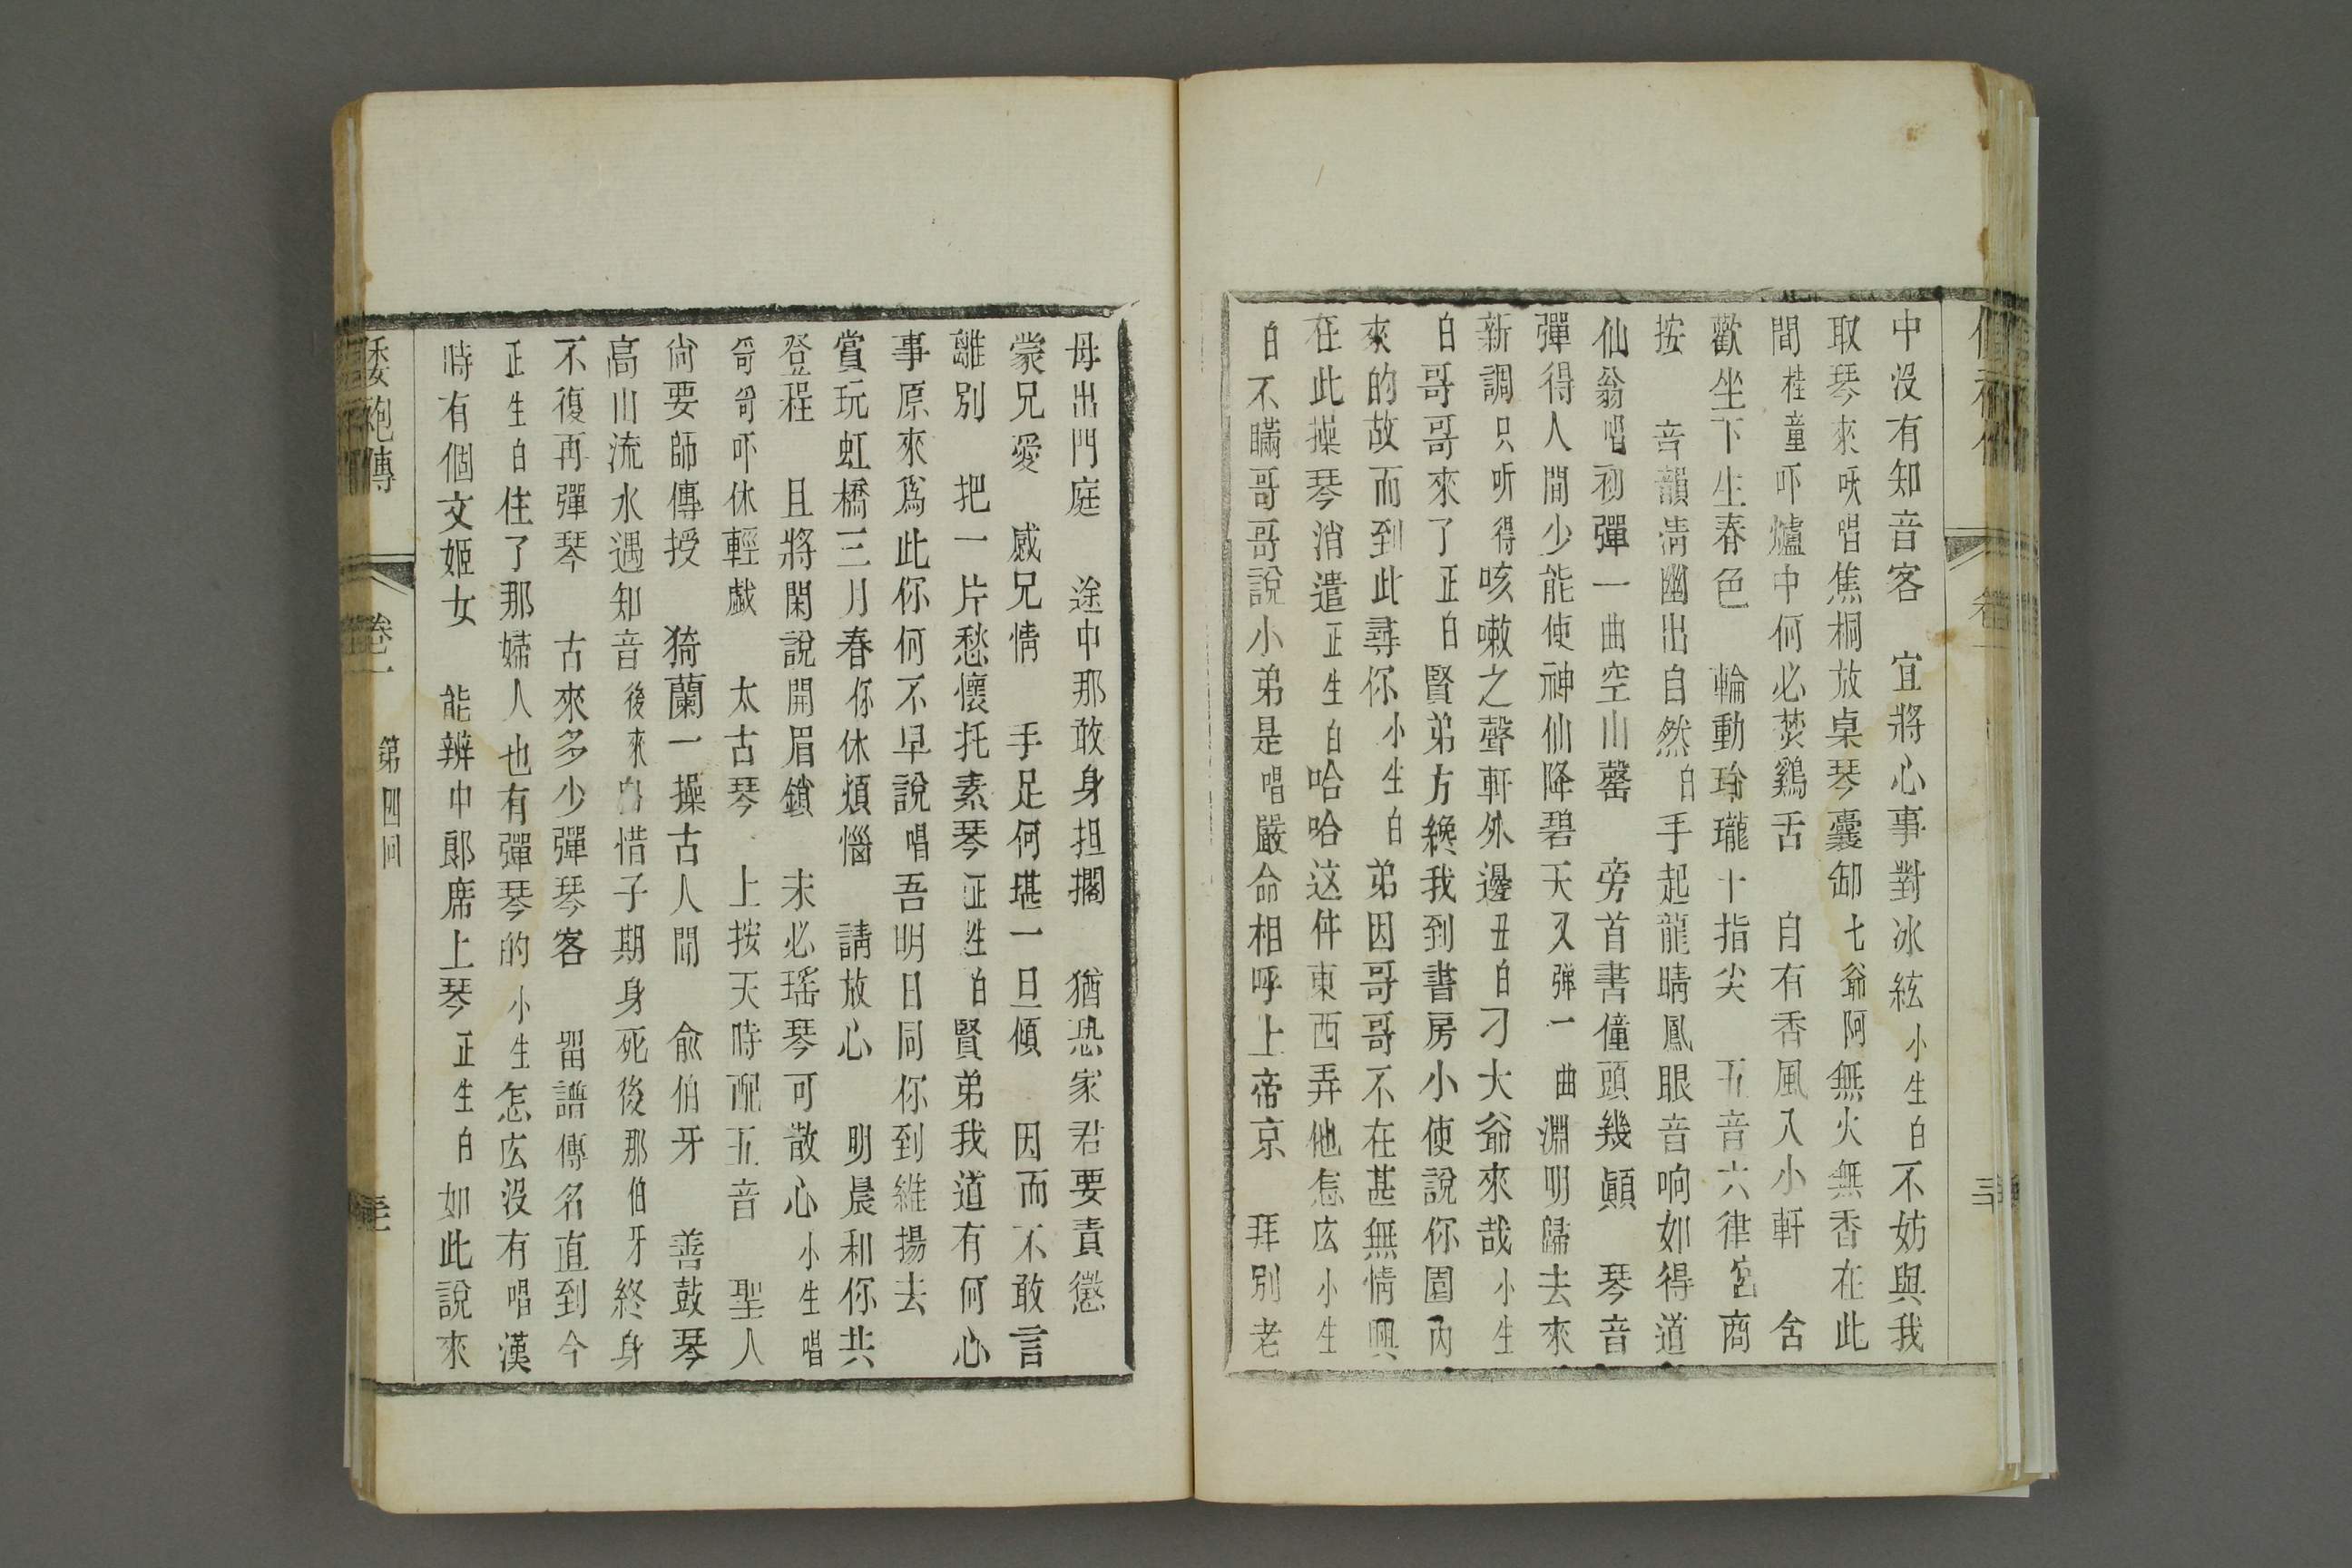 中没有知音客　宜將心事對冰絃小生白不妨與我
取琴來吷唱焦桐放桌琴囊卸七爺阿無火無香在此
間桂童吓爐中何必焚鷄舌　自有香風入小軒　含
歡坐下生春色　輪動玲瓏十指尖　五音六律宮商
按　音韻淸幽出自然白手起龍睛鳳眼音响如得道
仙翁唱初彈一曲空山罄　旁首書僮頭幾顚　琴音
彈得人間少能使神仙降碧天又弹一曲淵明歸去來
新調只听得咳嗽之聲軒外邊丑白刁大爺來哉小生
白哥哥來了正白賢弟方纔我到書房小使說你園內
來的故而到此尋你小生白弟因哥哥不在甚無情興
在此操琴消遣正生白哈哈这件東西弄他怎広小生
白不瞞哥哥說小弟是唱嚴命相呼上帝京　拜別老
母出門庭　途中那敢身担擱　猶恐家君要責懲
蒙兄愛　感兄情　手足何堪一旦傾　因而不敢言
離別　把一片愁懷托素琴正生白賢弟我道有何心
事原來爲此你何不早說唱吾明日同你到維揚去
賞玩虹橋三月春你休煩惱　請放心　明晨和你共
登程　且將閑說開眉鎖　未必瑤琴可散心小生唱
哥哥吓休輕戯　太古琴　上按天時配五音　聖人
尙要師傳授　猗蘭一操古人聞　俞伯牙　善鼓琴
高山流水遇知音後來白惜子期身死後那伯牙終身
不復再彈琴　古來多少彈琴客　畱譜傳名直到今
正生白住了那婦人也有彈琴的小生怎広没有唱漢
時有個文姬女　能辨中郎席上琴正生白如此說來
倭袍傳　卷一　第四回